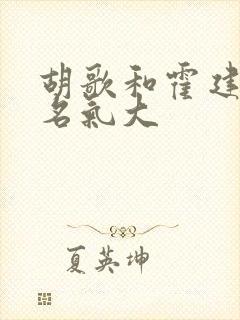 胡歌和霍建
名气大
夏英坤